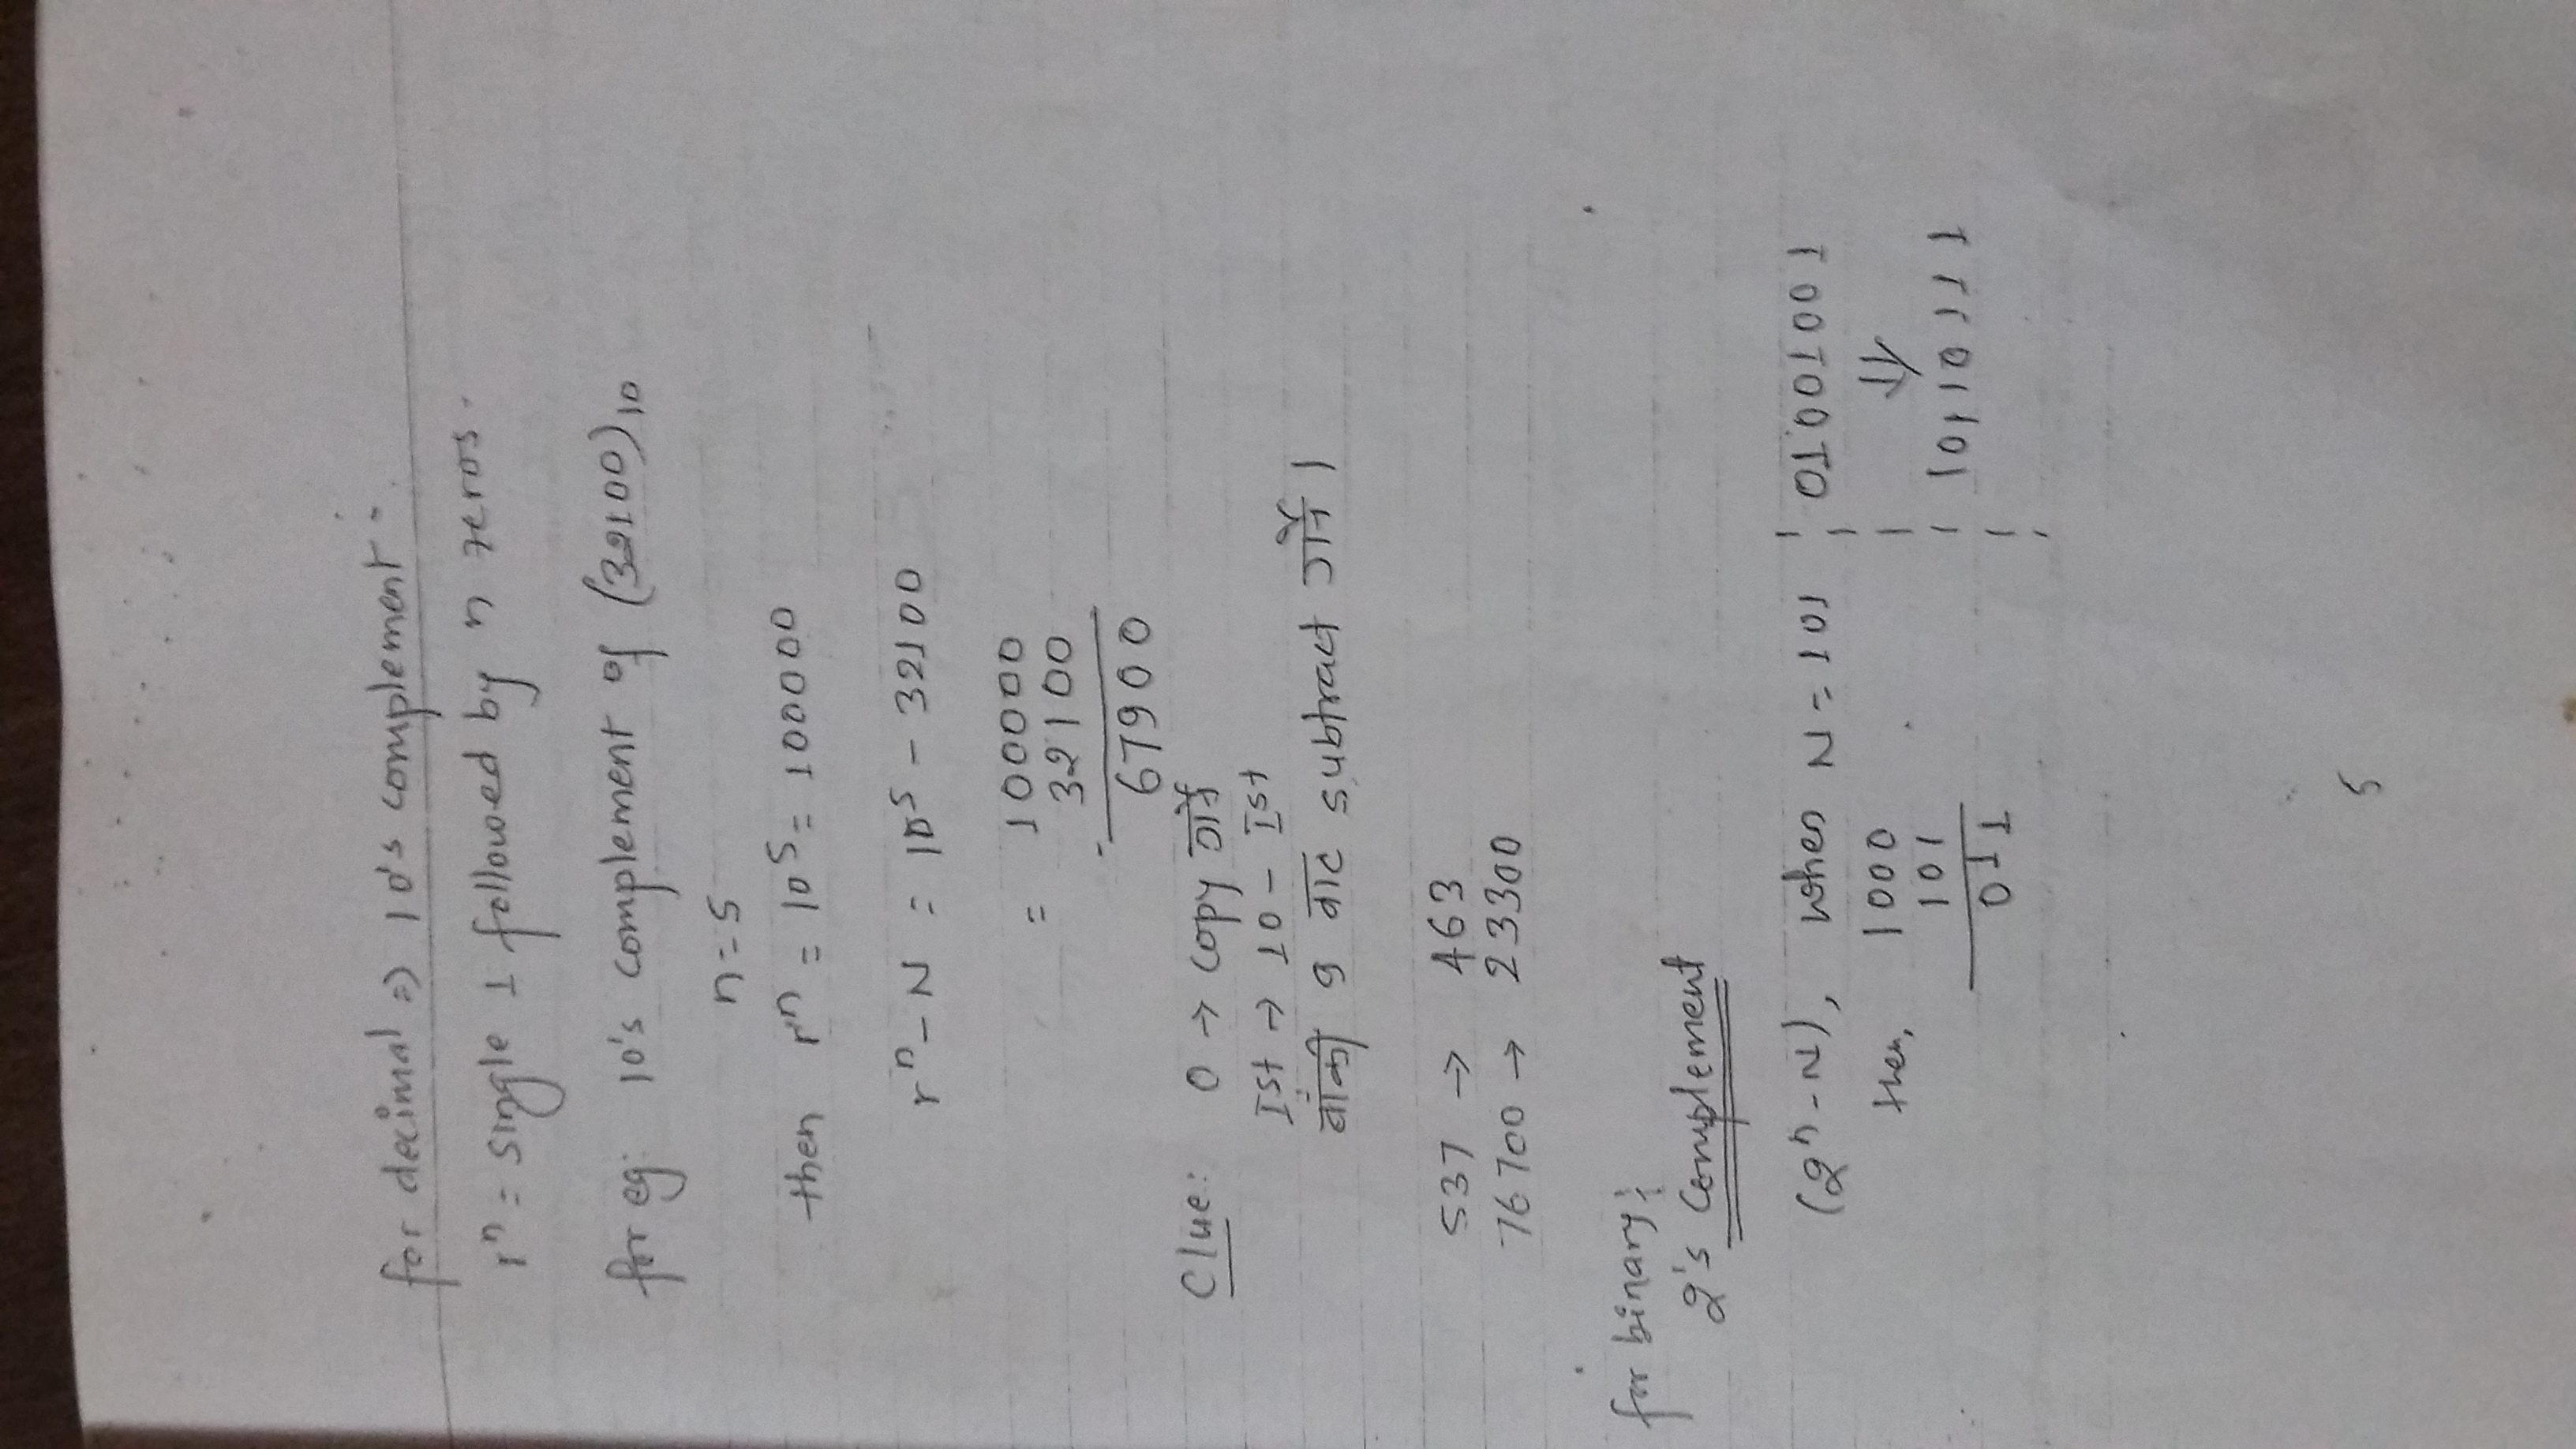 for decimal => 10's complement -
rⁿ = single 1 followed by n zeros.
for eg: 10's complement of (32100)₁₀
n = 5
then rⁿ = 10⁵ = 100000
rⁿ - N = 10⁵ - 32100
= 100000
32100
-
67900
Clue: 0 → copy गर्ने
Ist → 10 - Ist
बाँकी 9 बाट subtract गर्ने ।
537 → 463
76700 → 23300
for binary:
2's Complement
(2ⁿ - N), when N = 101
then, 1000
101
011
01001001
⇓
10110111
5